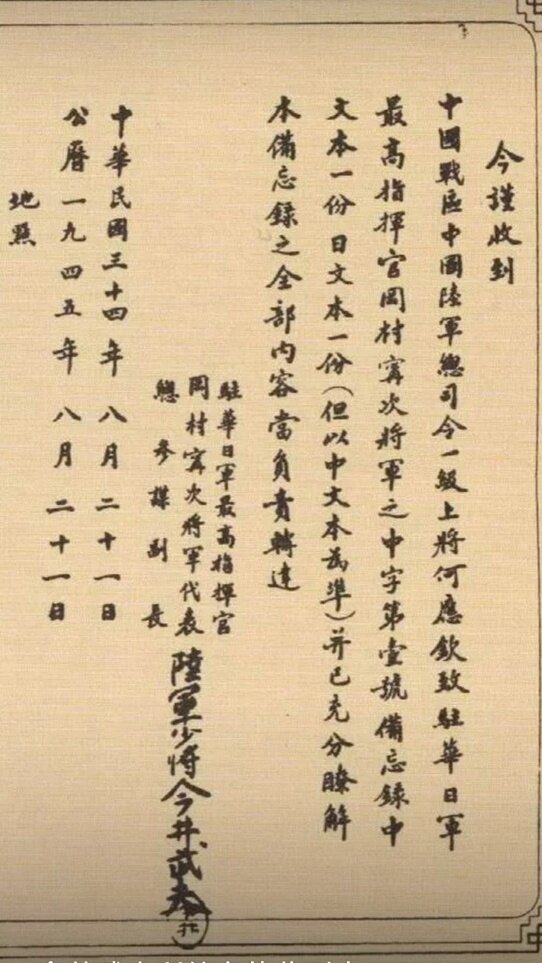 今謹收到
中國戰區中國陸軍總司令一級上將何應欽致駐華日軍
最高指揮官岡村寧次將軍之中字第壹號備忘錄中
文本一份日文本一份(但以中文本為準)并已充分瞭解
本備忘錄之全部內容當負責轉達
駐華日軍最高指揮官
岡村寧次將軍代表
總參謀副長
陸軍少將今井武夫
中華民國三十四年八月二十一日
公曆一九四五年八月二十一日
地點